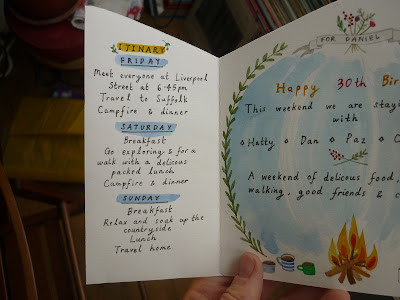 ITINARY
FRIDAY
Meet everyone at Liverpool
Street at 6.45pm
Travel to Suffolk
Campfire & dinner
SATURDAY
Breakfast
Go exploring & for a
walk with a delicous
packed lunch
Campfire & dinner
SUNDAY
Breakfast
Relax and soak up the
countryside
Lunch
Travel home
FOR DANIEL
Happy 30th Bir
This weekend we are stayi
with
Hatty Dan Paz
A weekend of delicous food,
walking, good friends &